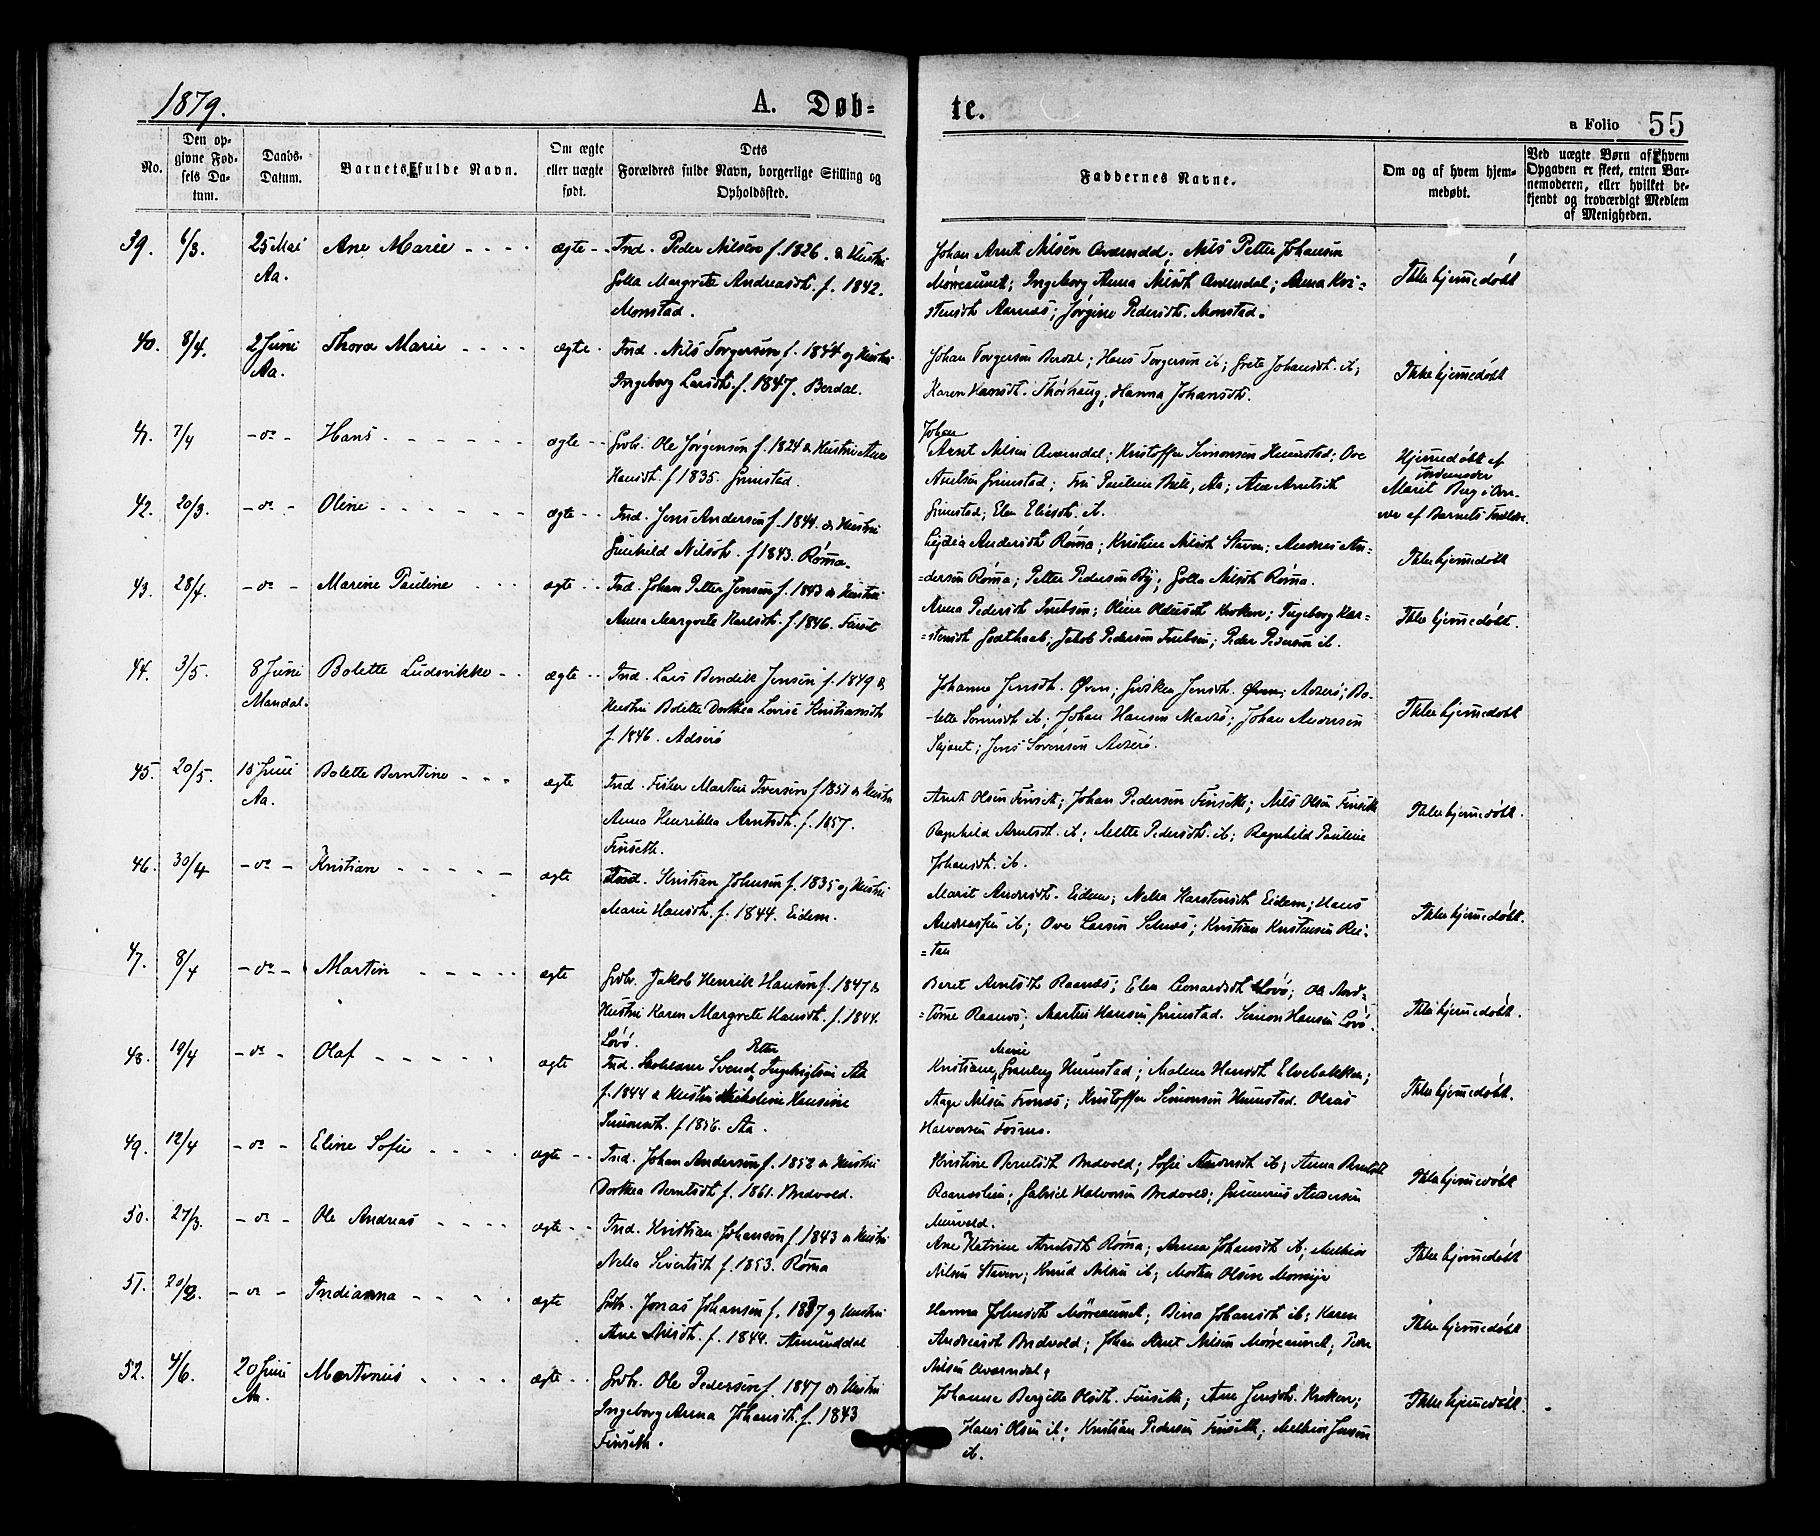 1879.
A. Døb-
te.
a Folio 55
No.
Den op-
givne Fød-
sels Da-
tum.
Daabs-
Datum.
Barnets fulde Navn.
Om ægte
eller uægte
født.
Dets
Forældres fulde Navn, borgerlige Stilling og
Opholdssted.
Faddernes Navne.
Om og af hvem hjem-
medøbt.
Ved uægte Børn af hvem
Opgaven er skeet, enten Bar-
nemoderen, eller hvilket be-
kjendt og troværdigt Medlem
af Menigheden.
39. 6/3. 25 Mai Ane Marie ægte Ind. Peder Nilsen f. 1826. & Hustru
Aa. Golla Margrete Andreasdt. f. 1842.
Monstad.
Johan Arnt Nilsen Avendal; Nils Petter Johansen
Mørreaunet; Ingeborg Anna Nilsdt Avendal; Anna Kri-
stensdt Aarnes; Jørgine Pedersdt. Monstad.
Ikke hjemmedøbt
40. 8/4. 2 Juni Thora Marie ægte Ind. Nils Torgersen f. 1854 og Hustru
Aa. Ingeborg Larsdt. f. 1847. Berdal.
Johan Torgersen Berdal; Hans Torgersen it; Grete Johansdt. it;
Karen Hansdt. Thørhaug; Hanna Johansdt.
Ikke hjemmedøbt
41. 7/4 -do- Hans ægte Grdbr. Ole Jørgensen f. 1824 & Hustru Ane
Hansdt. f 1835. Grimstad.
Johan
Arnt Nilsen Avendal; Kristoffer Simonsen Humstad; Ove
Arntsen Grimstad; Fru Pauline Buk, Aa; Ane Arntsdt
Grimstad; Elen Eliasdt it.
Hjemmedøbt af
Jordemoder
Marit Berg i Over-
vær af Barnets Forældre.
42. 20/3. -do- Oline ægte Ind. Jens Andersen f. 1844. & Hustru
Gunhild Nilsdt. f. 1843. Røma.
Lydia Andersdt Røma; Kristine Nilsdt Staven; Andreas An-
=dersen Røma; Petter Pedersen By; Golla Nilsdt Røma.
Ikke hjemmedøbt
43. 28/4. -do- Marine Pauline ægte Ind. Johan Petter Jensen f. 1843 & Hustru
Anna Margrete Karlsdt. f. 1846.
Anna Pedersdt; Oline Kroken; Ingeborg Kar-
=stensdt Godthaab; Jakob Pedersen; Peder Pedersen it.
Ikke hjemmedøbt.
44. 3/5. 8 Juni Bolette Ludovikke ægte Ind. Lars Bendik Jensen f. 1849 &
Mandal. Hustru Bolette Dorthea Lovise Kristiansdt
f. 1846. Adserø
Johanna Jensdt. Øven; Jensdt. Øven; Adserø; Bo-
-lette it; Johan Hansen; Johan Andersen
Jens Sørensen Adserø.
Ikke hjemmedøbt
45. 20/5. 15 Juni Bolette Berntine ægte Ind. Fisker Martin Iversen f 1851 & Hustru
Aa. Anna Henrikka Arntsdt. f. 1857.
Finseth.
Arnt Olsen Finseth; Johan Pedersen Finseth; Nils Olsen Finseth
Ragnhild Arntsdt. it; Mette Pedersdt. it; Ragnhild Pauline
Johansdt. it.
Ikke hjemmedøbt.
46. 30/4 -do- Kristian ægte Ind. Kristian Johnsen f. 1835 og Hustru
Marie Hansdt. f. 1844. Eidem.
Marit Andersdt. Eidem; Nella Karstensdt Eidem; Hans
Andreassen it; Ove Larsen Selnes; Kristian Kristensen Rei-
=tan
Ikke hjemmedøbt.
47. 8/4 -do- Martin ægte Grdbr. Jakob Henrik Hansen f. 1847 &
Hustru Karen Margrete Hansdt. f. 1844.
Løvø.
Beret Arntsdt Raanes; Elen Leonardsdt Løvø; Ole And-
=tøme Raanes; Martin Hansen Grimstad. Simon Hansen Løvø.
Ikke hjemmedøbt.
48. 19/4 -do- Olaf ægte Ind. Skolelærer Svend Petter Ingebrigtsen Aa
f. 1844 & Hustru Nikoline Hansine
Simonsdt. f. 1856. Aa.
Kristiane Marie Grønberg Humstad; Malena Hansdt Elvebakken;
Aage Nilsen; Kristoffer Simonsen Humstad. Olaus
Halvorsen Fosnes.
Ikke hjemmedøbt.
49. 12/4 -do- Eline Sofie ægte Ind. Johan Andersen f. 1852 & Hustru
Dorthea Berntsdt f. 1861. Bredvold.
Kristine Berntsdt Bredvold; Sofie Andersdt it; Anna Berntsdt
Raanesslien; Gabriel Halvorsen Bredvold; Gunnerius Andersen
Ikke hjemmedøbt
50. 27/3. -do- Ole Andreas ægte Ind. Kristian Johansen f. 1843 & Hustru
Nella Sivertsdt f. 1853. Røma
Ane Katrine Arntsdt Røma; Anna Johansdt it; Melkior
Nilsen Staven; Knud Nilsen it; Morten Olsen
Ikke hjemmedøbt
51. -do- Indianna ægte Grdbr. Jonas Johansen f. 1837 og Hustru
Ane Nilsdt. f. 1844. Asmunddal
Hanna Johnsdt Mørreaunet; Bina Johansdt it; Karen
Andreasdt Bredvold; Johan Arnt Nilsen Mørreaunet; Peder
Nilsen Avendal;
Ikke hjemmedøbt
52. 4/6. 20 Juni Martinus ægte Grdbr. Ole Pedersen f. 1847 & Hustru
Aa. Ingeborg Anna Johansdt. f. 1843
Finseth.
Johanna Bergitte Olsdt. Finseth; Ane Jensdt. Kroken;
Hans Olsen it; Kristian Pedersen Finseth; Melkior Jensen
it.
Ikke hjemmedøbt.